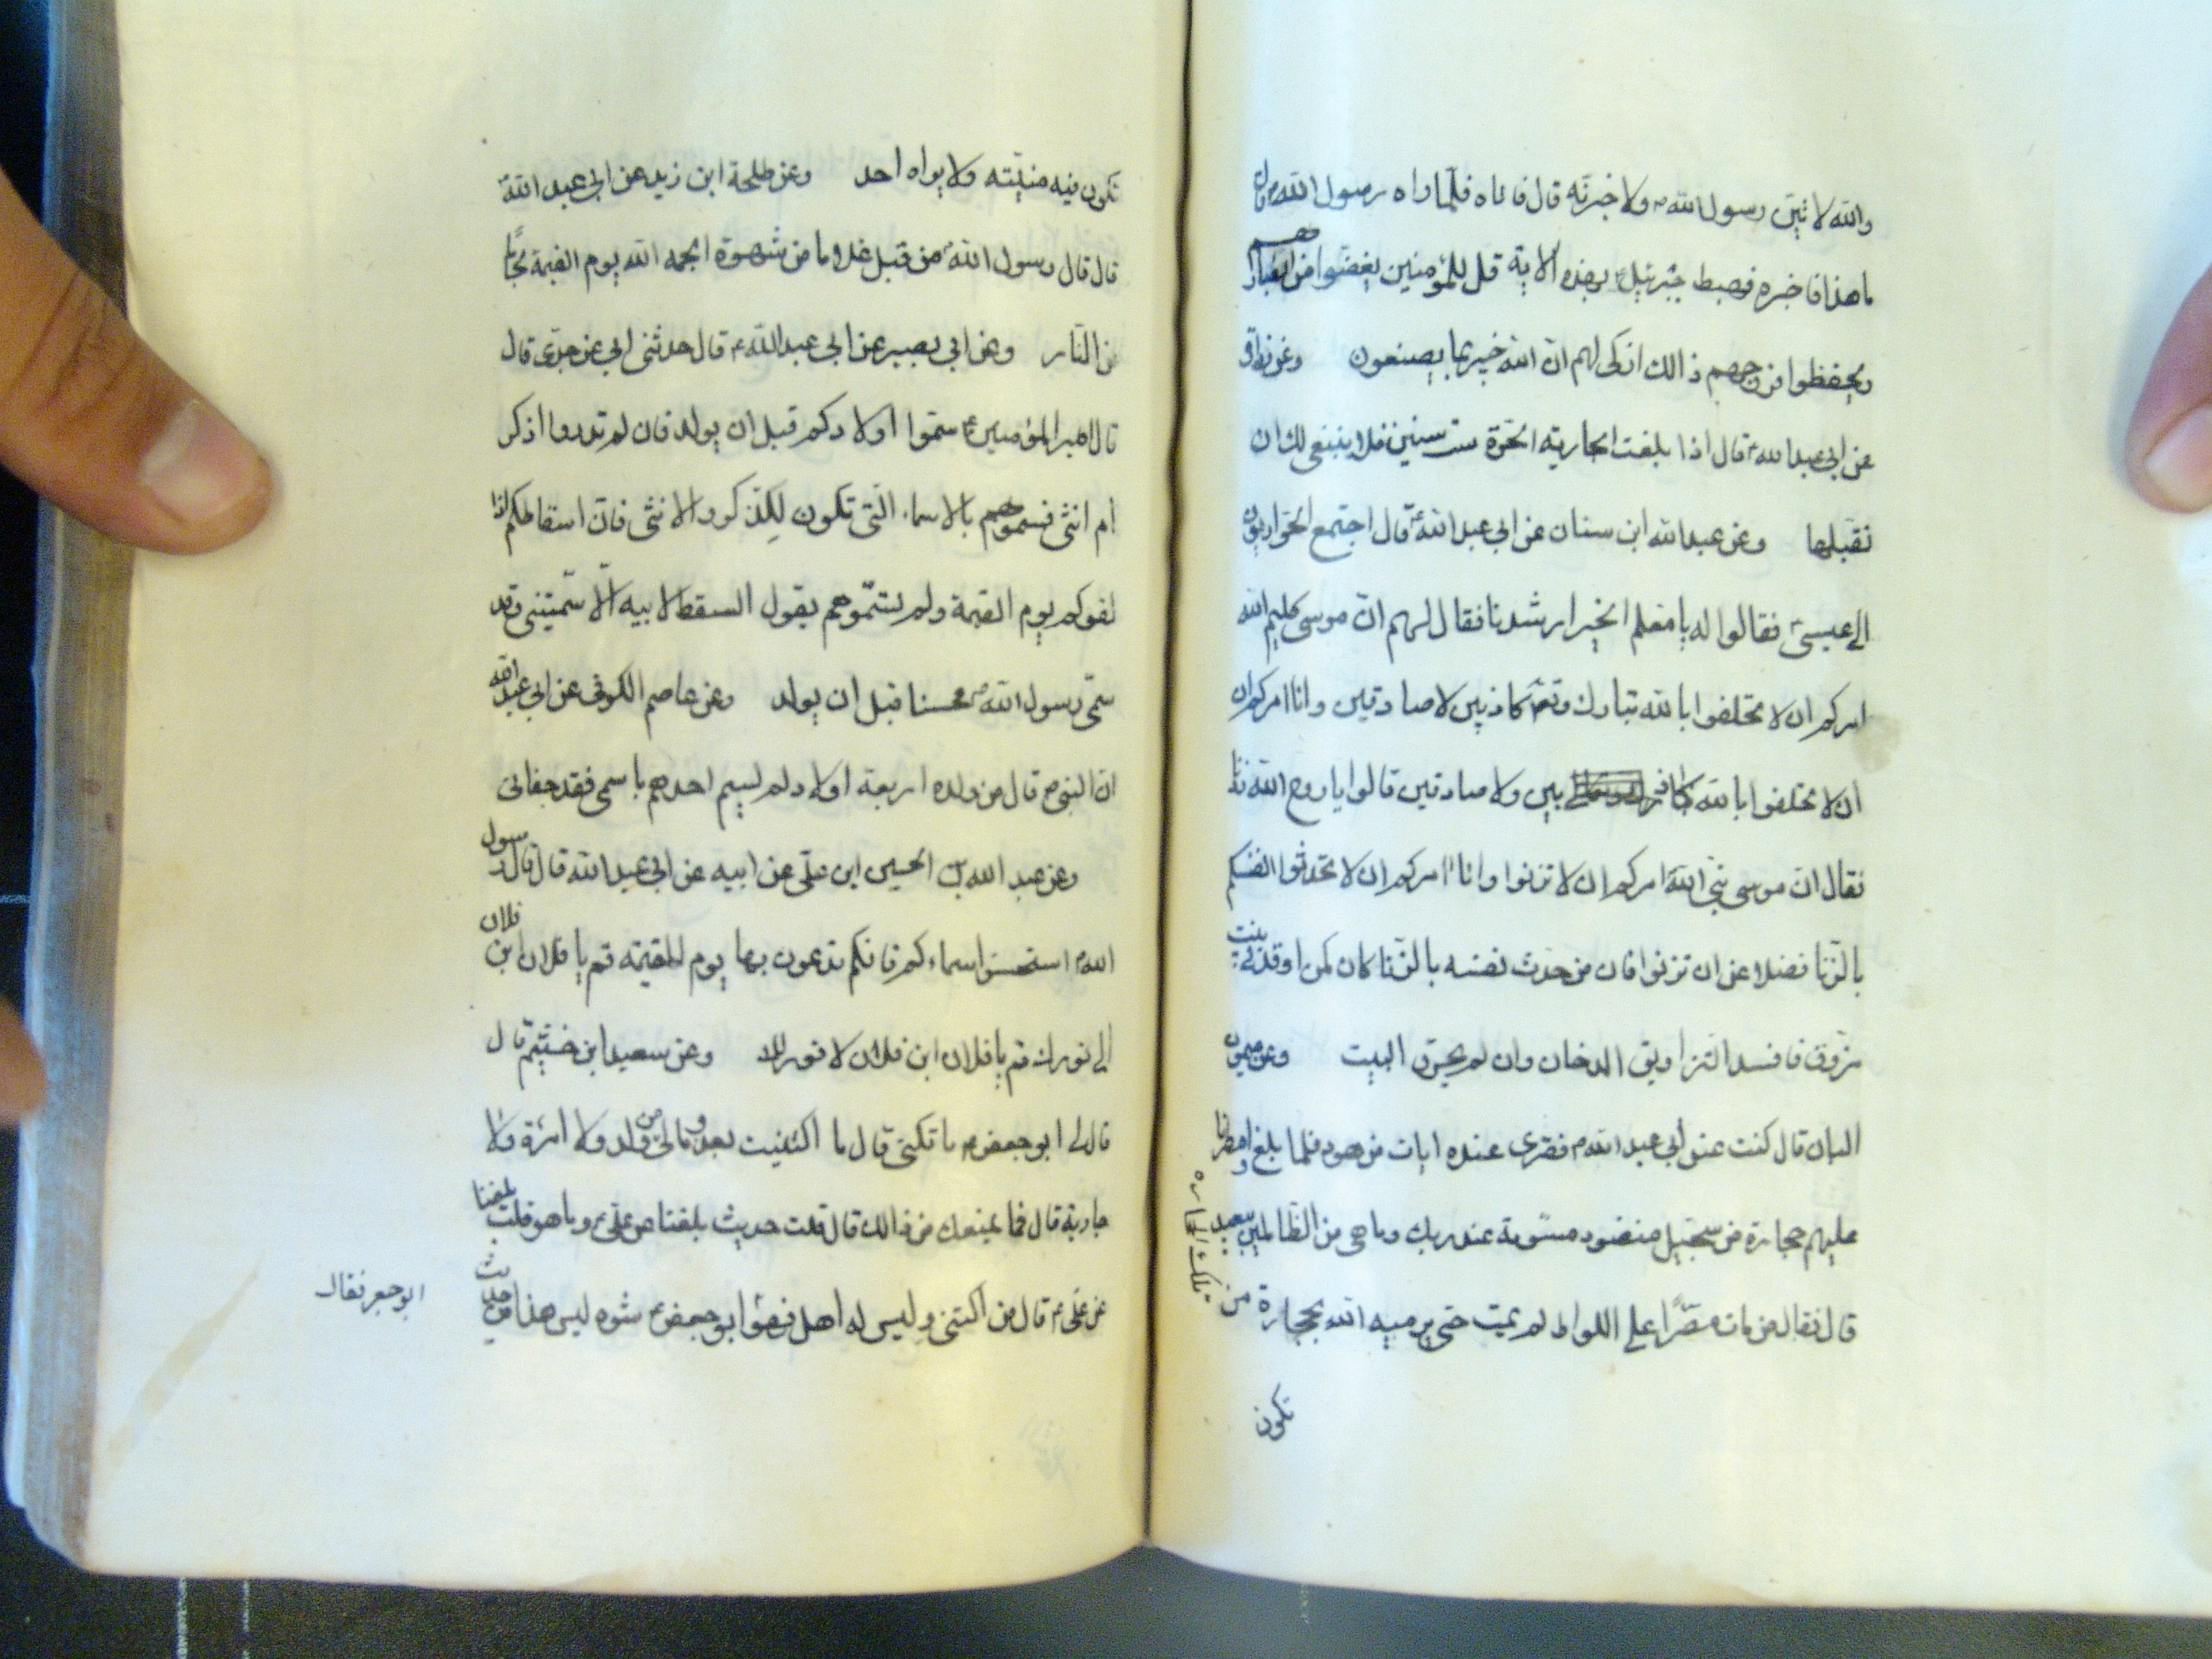 والله لاتین رسول الله ولاخبرنه قال فاتاه فلما راه رسول الله قال
ما هذا فاخبره فهبط جبرئیل بهذه الایة قل للمؤمنین یغضوا من ابصارهم
ویحفظوا فروجهم ذالك ازکی لهم ان الله خبیر بما یصنعون وعن زرارة
عن ابی عبد الله ع قال اذا بلغت الجاریة الحرة ست سنین فلا ینبغی لك ان
تقبلها وعن عبد الله ابن سنان عن ابی عبد الله ع قال اجتمع الحواریون
الی عیسی ع فقالوا له یا معلم الخیر ارشدنا فقال لهم ان موسی کلیم الله
امرکم ان لا تحلفوا بالله تبارك وتعالی کاذبین لاصادقین وانا امرکم ان
ان لا تحلفوا بالله کاذبین ولا صادقین قالوا یا روح الله زدنا
فقال ان موسی نبی الله امرکم ان لا تزنوا وانا امرکم ان لا تحدثوا انفسکم
بالزنا فضلا عن ان تزنوا فان من حدث نفسه بالزنا کان کمن اوقد فی بیت
مزوق فافسد التزاویق الدخان وان لم یحرق البیت وعن میمون
البان قال کنت عند ابی عبد الله ع فقری عنده ایات من هود فلما بلغ وامطرنا
علیهم حجارة من سجیل منضود مسومة عند ربك وما هی من الظالمین ببعید
قال فقال من مات مصرًا علی اللواط لم یمت حتی یرمیه الله بحجارة من
تلك الحجاره
تکون
تکون فیه منیته ولا یراه احد وعن طلحة ابن زید عن ابی عبد الله ع
قال قال رسول الله من قبل غلاما من شهوة الجمه الله یوم القیمة بلجام
من النار وعن ابی بصیر عن ابی عبد الله ع قال حدثنی ابی عن جدی قال
قال امیر المؤمنین ع سموا اولادکم قبل ان یولد فان لم تدروا اذکر
ام انثی فسموهم بالاسماء التی تکون للذکر والانثی فان اسقاطکم اذا
لقوکم یوم القیمة ولم تسموهم یقول السقط لابیه الا سمیتنی وقد
سمی رسول الله محسنا قبل ان یولد وعن عاصم الکوفی عن ابی عبد الله
ان النبی ص قال من ولده اربعة اولاد لم یسم احدهم باسمی فقد جفانی
وعن عبد الله بن الحسین ابن علی عن ابیه عن ابی عبد الله قال قال رسول
الله استحسنوا اسماءکم فانکم تدعون بها یوم القیمة قم یا فلان ابن فلان
الی نورك قم یا فلان ابن فلان لا نور لك وعن سعید ابن خثیم قال
قال لی ابو جعفر ع ما تکنی قال ما اکتنیت بعد ومالی من ولد ولا امرة ولا
جاریة قال فما یمنعك من ذالك قال قلت حدیث بلغنا عن علی ع وما هو قلت بلغنا
عن علی ع قال من اکتنی ولیس له اهل فهو ابو جعفر ع شوه لیس هذا من حدیث
ابو جعر فقال